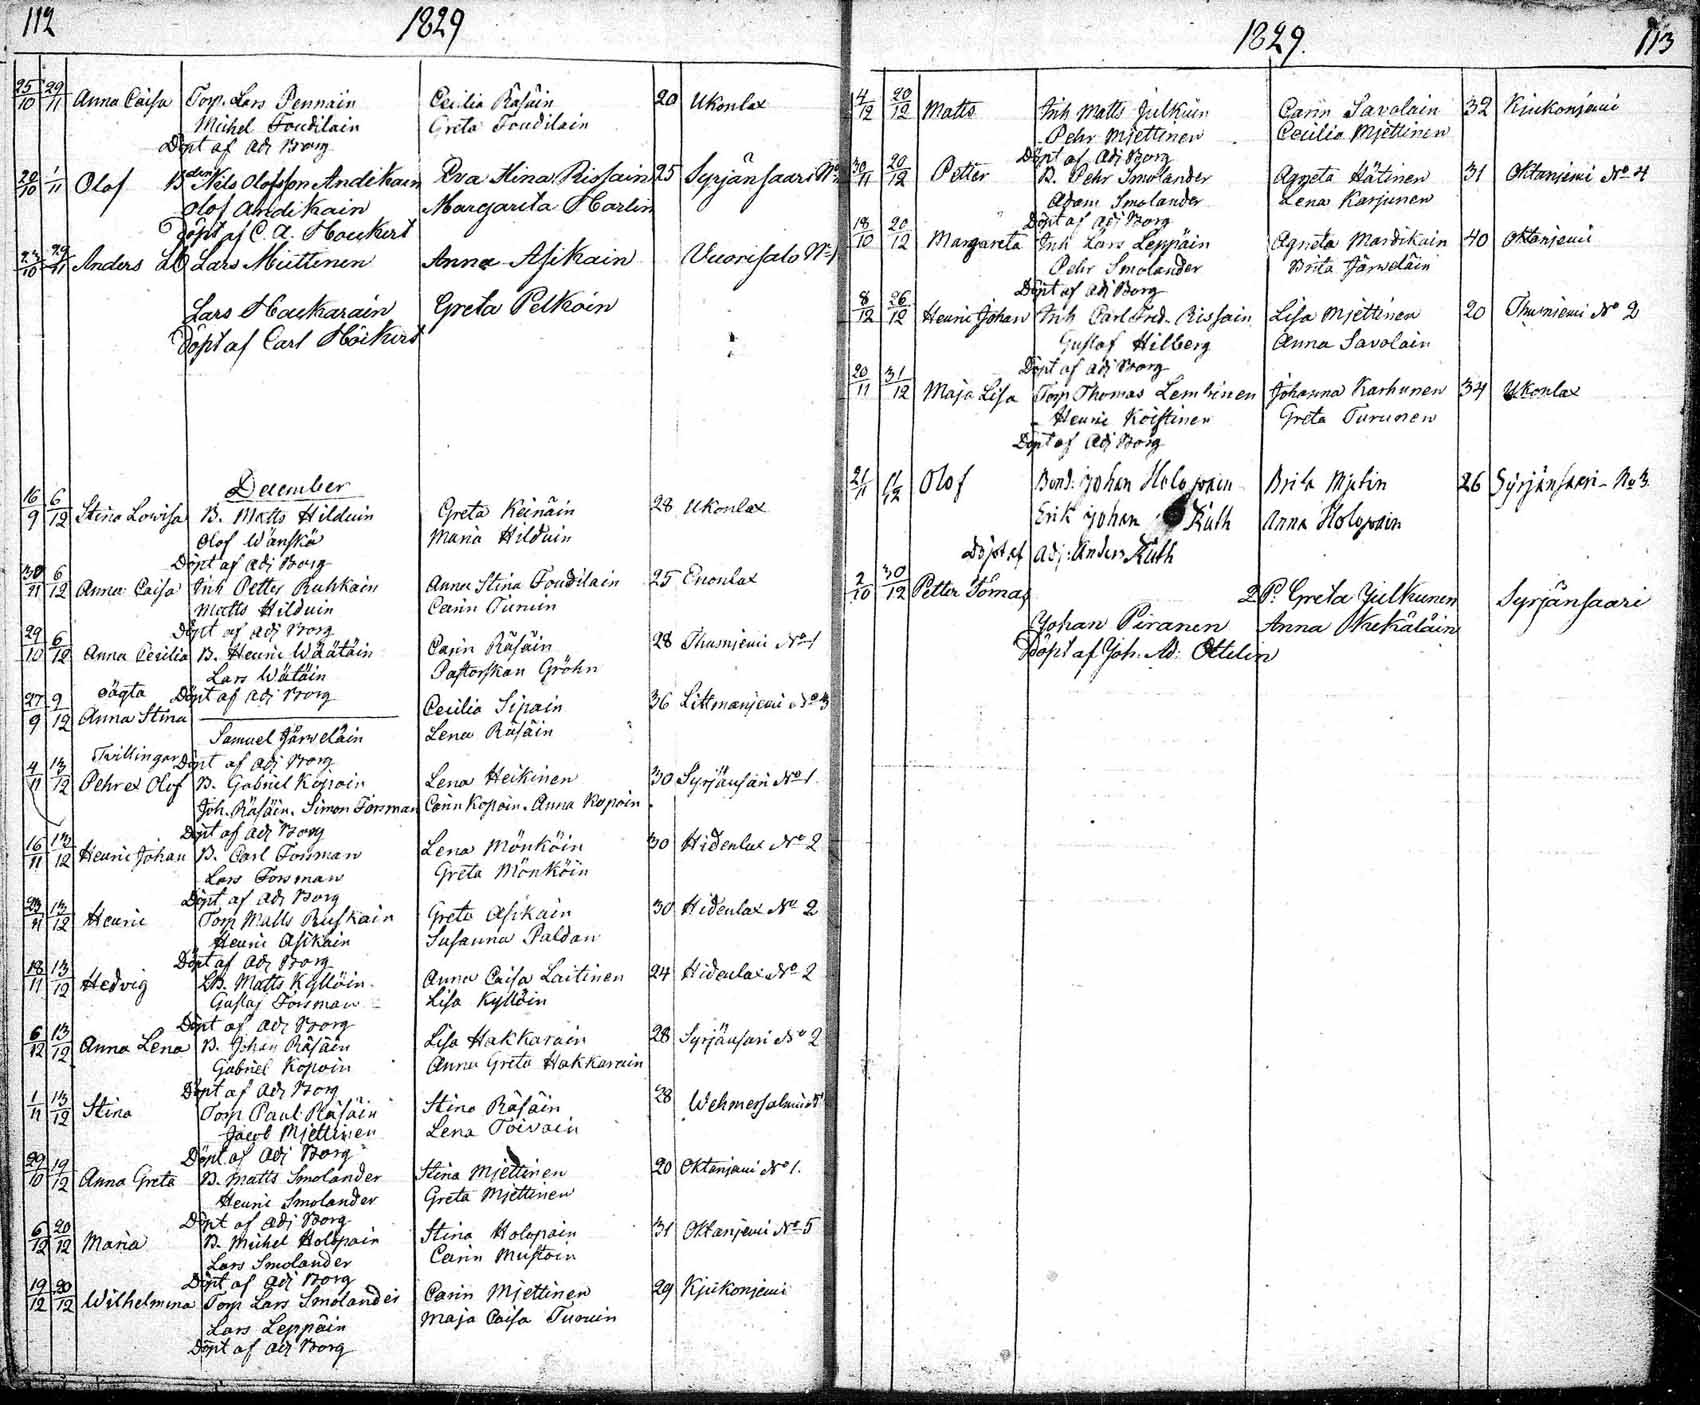 112
1829
25/10 29/11 Anna Caisa Torp. Lars Pennäin Cecilia Räsäin 20 Ukonlax
Michel Toudilain Greta Toudilain
Döpt af Adj Borg
20/10 1/11 Olof Bden Nils Olofsson Andikain Eva Stina Rissain 25 Syrjänsaari No
Olof Andikain Margareta Harlin
Döpt af C. A. Houkert
23/10 29/11 Anders LB Lars Miettinen Anna Asikain Vuorisalo No 1
Lars Houkarain Greta Pelkoin
Döpt af Carl Höckert
December
16/9 6/12 Stina Lowisa B. Matts Hilduin Greta Keinäin 28 Ukonlax
Olof Wänskä Maria Hilduin
Döpt af Adj Borg
30/11 6/12 Anna Caisa Inh Petter Ruhkain Anna Stina Toudilain 25 Enonlax
Matts Hilduin Carin Turuin
Döpt af Adj Borg
29/10 6/12 Anna Cecilia B. Henric Wäätäin Carin Räsäin 28 Thusnjemi No 1
Lars Wätäin Pastorskan Gröhn
Döpt af Adj Borg
27/9 9/12 oägta Anna Stina Cecilia Sipain 36 Littmanjemi No 3
Samuel Järweläin Lena Räsäin
Döpt af Adj Borg
Twillingar
4/11 13/12 Pehr et Olof B. Gabriel Kopoin Lena Heikinen 30 Syrjänsari No 1.
Joh. Räsäin. Simon Forsman Carin Kopoin. Anna Kopoin
Döpt af Adj Borg
16/11 13/12 Henric Johan B. Carl Forsman Lena Mönköin 30 Hidenlax No 2
Lars Forsman Greta Mönköin
Döpt af Adj Borg
23/11 13/12 Henric Torp Matts Ruskain Greta Asikain 30 Hidenlax No 2
Henric Asikain Susanna Paldan
Döpt af Adj Borg
18/11 13/12 Hedvig LB. Matts Kyllöin Anna Caisa Laitinen 24 Hidenlax No 2
Gustaf Forsman Lisa Kyllöin
Döpt af Adj Borg
6/12 13/12 Anna Lena B. Johan Räsäin Lisa Hakkarain 28 Syrjänsari No 2
Gabriel Kopoin Anna Greta Hakkarain
Döpt af Adj Borg
1/11 13/12 Stina Torp Paul Räsäin Stina Räsäin 28 Wehmersalmi
Jacob Mjettinen Lena Toivain
Döpt af Adj Borg
29/10 19/12 Anna Greta B. Matts Smolander Stina Mjettinen 20 Oktanjemi No 1.
Henric Smolander Greta Mjettinen
Döpt af Adj Borg
6/12 20/12 Maria B. Michel Holopain Stina Holopain 31 Oktanjemi No 5
Lars Smolander Carin Mustoin
Döpt af Adj Borg
19/12 20/12 Wilhelmina Torp Lars Smolander Carin Mjettinen 29 Kjukonjemi
Lars Leppäin Maja Caisa Turuin
Döpt af Adj Borg
1829.
113
4/12 20/12 Matts Inh Matts Julkuin Carin Savolain 32 Kjukonjemi
Pehr Mjettinen Cecilia Mjettinen
Döpt af Adj Borg
30/11 20/12 Petter B. Pehr Smolander Agneta Hätinen 31 Oktanjemi No 4
Adam Smolander Lena Karjunen
Döpt af Adj Borg
18/10 20/12 Margareta Inh Lars Leppäin Agneta Mardikain 40 Oktanjemi
Pehr Smolander Brita Järweläin
Döpt af Adj Borg
8/12 26/12 Henric Johan Inh Carl Fred. Rissain Lisa Mjettinen 20 Thusnjemi No 2
Gustaf Hilberg Anna Savolain
Döpt af Adj Borg
20/11 31/12 Maja Lisa Torp Thomas Lembinen Johanna Karhunen 34 Ukonlax
Henric Koistinen Greta Turunen
Döpt af Adj Borg
21/11 Olof Bond: Johan Holopain Brita Mjetin 26 Syrjänsaari No 3.
Erik Johan Kuth Anna Holopain
Döpt af Adj: Anders Kuth
2/10 30/12 Petter Tomas 2 P. Greta Julkunen Syrjänsaari
Johan Piranen Anna Kekäläin
Döpt af Joh. Ad: Ottelin